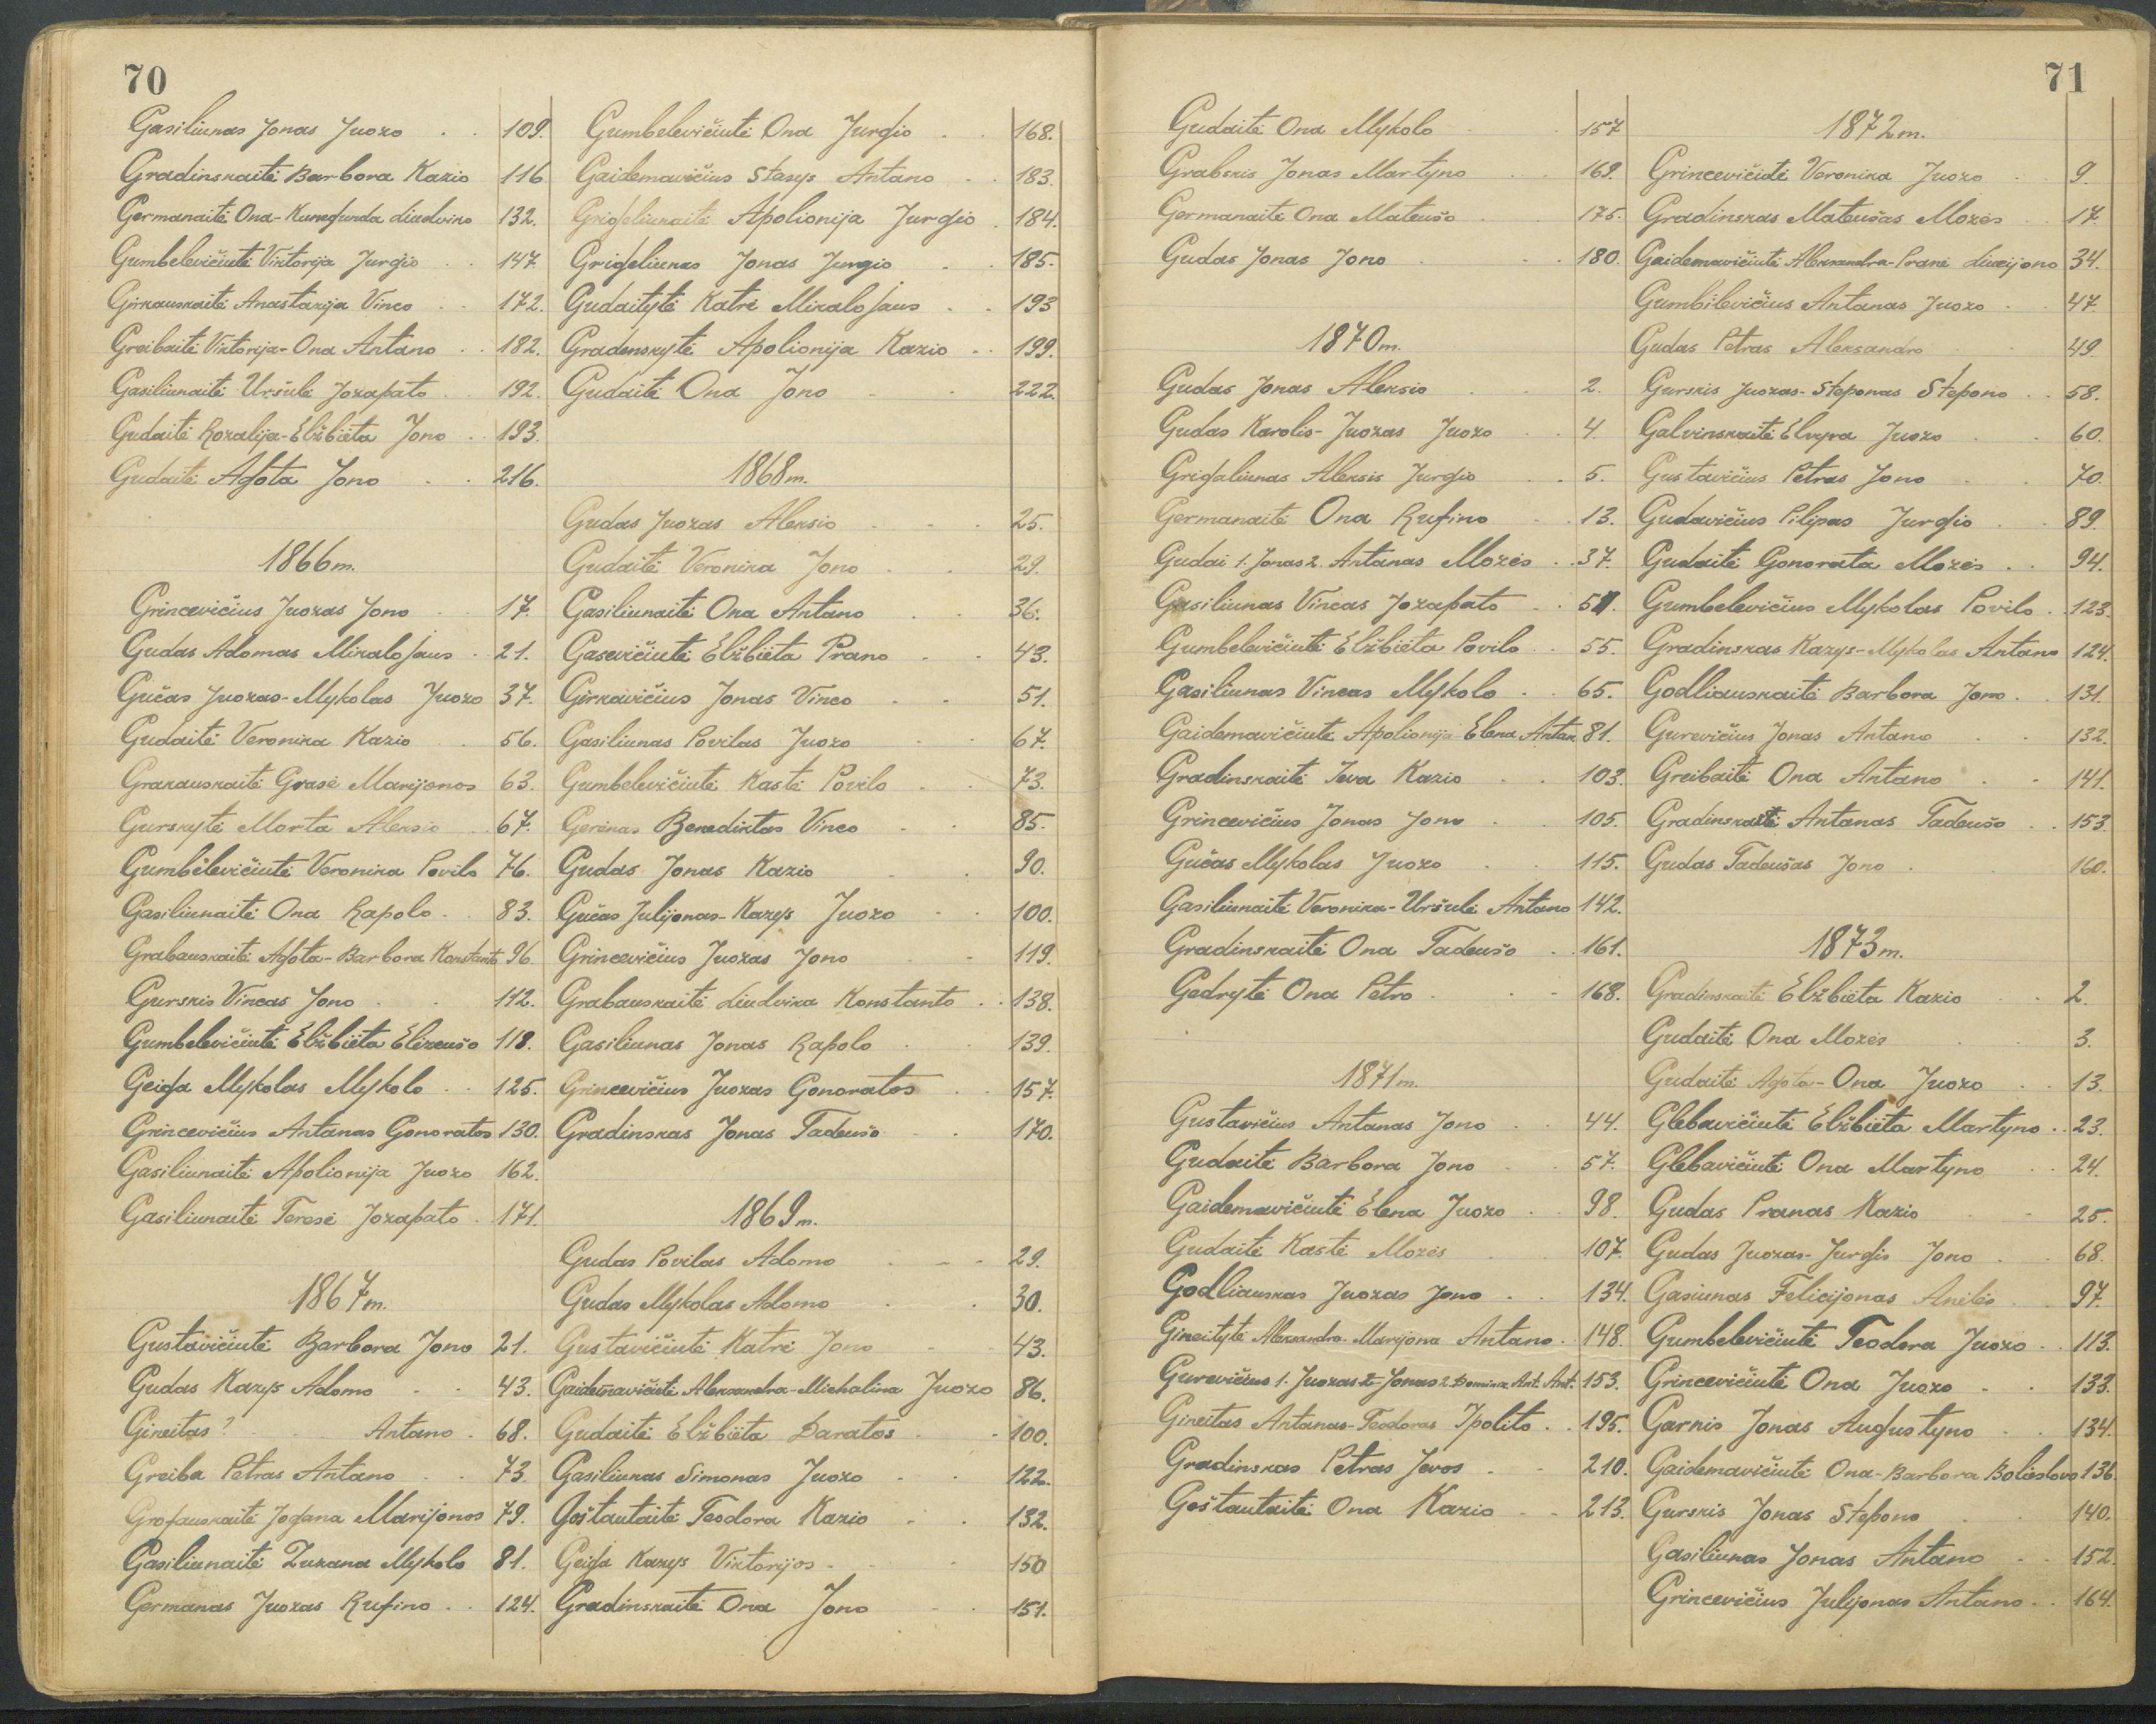 70
Gasiliunas Jonas Juozo 109.
Gradinskaitė Barbora Kazio 116
Germanaitė Ona-Kunegunda Liudviko 132.
Gumbelevičiutė Viktorija Jurgio 147.
Girkauskaitė Anastazija Vinco 172.
Greibaitė Viktorija-Ona Antano 182.
Gasiliunaitė Uršulė Jozapato 192.
Gudaitė Rozalija-Elžbieta Jono 193.
Gudaitė Agota Jono 216.
1866m.
Grincevičius Juozas Jono 17.
Gudas Adomas Mikalojaus 21.
Gučas Juozas-Mykolas Juozo 37.
Gudaitė Veronika Kazio 56.
Grakauskaitė Grasė Marijonos 63.
Gurskytė Morta Aleksio 67.
Gumbelevičiutė Veronika Povilo 76.
Gasiliunaitė Ona Rapolo 83.
Grabauskaitė Agota-Barbora Konstanto 96.
Gurskis Vincas Jono 112.
Gumbelevičiutė Elžbieta Elizeušo 118.
Geiga Mykolas Mykolo 125.
Grincevičius Antanas Gonoratos 130.
Gasiliunaitė Apolionija Juozo 162.
Gasiliunaitė Teresė Jozapato 171.
1867m.
Gustavičiutė Barbora Jono 21.
Gudas Kazys Adomo 43.
Gineitas ? Antano 68.
Greiba Petras Antano 73.
Grogauskaitė Jogana Marijonos 79.
Gasiliunaitė Zuzana Mykolo 81.
Germanas Juozas Rufino 124.
Gumbelevičiutė Ona Jurgio 168.
Gaidemavičius Stasys Antano 183.
Grigeliunaitė Apolionija Jurgio 184.
Grigeliunas Jonas Jurgio 185.
Gudaitytė Katrė Mikalojaus 193
Gradenskytė Apolionija Kazio 199.
Gudaitė Ona Jono 222.
1868m.
Gudas Juozas Aleksio 25.
Gudaitė Veronika Jono 29.
Gasiliunaitė Ona Antano 36.
Gasevičiutė Elžbieta Prano 43.
Girkavičius Jonas Vinco 51.
Gasiliunas Povilas Juozo 67.
Gumbelevičiutė Kastė Povilo 73.
Gerėnas Benediktas Vinco 85.
Gudas Jonas Kazio 90.
Gučas Julijonas-Kazys Juozo 100.
Grincevičius Juozas Jono 119.
Grabauskaitė Liudvika Konstanto 138.
Gasiliunas Jonas Rapolo 139.
Grincevičius Juozas Gonoratos 157.
Gradinskas Jonas Tadeušo 170.
1869m.
Gudas Povilas Adomo 29.
Gudas Mykolas Adomo 30.
Gustavičiutė Katrė Jono 43.
Gaidemavičiutė Aleksandra-Michalina Juozo 86.
Gudaitė Elžbieta Daratos 100.
Gasiliunas Simonas Juozo 122.
Goštautaitė Teodora Kazio 132.
Geiga Kazys Viktorijos 150
Gradinskaitė Ona Jono 151.
71
Gudaitė Ona Mykolo 157
Grabskis Jonas Martyno 169.
Germanaitė Ona Mateušo 175.
Gudas Jonas Jono 180.
1870m.
Gudas Jonas Aleksio 2.
Gudas Karolis-Juozas Juozo 4.
Grigaliunas Aleksis Jurgio 5.
Germanaitė Ona Rufino 13.
Gudai 1. Jonas 2. Antanas Mozės 37.
Gasiliunas Vincas Jozapato 51.
Gumbelevičiutė Elžbieta Povilo 55.
Gasiliunas Vincas Mykolo 65.
Gaidemavičiutė Apolionija-Elena Antan 81.
Gradinskaitė Ieva Kazio 103.
Grincevičius Jonas Jono 105.
Gučas Mykolas Juozo 115.
Gasiliunaitė Veronika-Uršulė Antano 142.
Gradinskaitė Ona Tadeušo 161.
Gedrytė Ona Petro 168.
1871m.
Gustavičius Antanas Jono 44.
Gudaitė Barbora Jono 57.
Gaidemavičiutė Elena Juozo 98.
Gudaitė Kastė Mozės 107.
Godliauskas Juozas Jono 134.
Gineitytė Aleksandra-Marijona Antano 148.
Gurevičius 1. Juozas 2. Jonas 2. Dominik. Ant. Ant. 153.
Gineitas Antanas-Teodoras Ipolito 195.
Gradinskas Petras Jevos 210.
Goštautaitė Ona Kazio 213.
1872m.
Grincevičiutė Veronika Juozo 9.
Gradinskas Mateušas Mozės 17.
Gaidemavičiutė Aleksandra-Pranė Liucijono 34.
Gumbilevičius Antanas Juozo 47.
Gudas Petras Aleksandro 49.
Gurskis Juozas-Steponas Stepono 58.
Galvinskaitė Elvyra Juozo 60.
Gustavičius Petras Jono 70.
Gudavičius Pilipas Jurgio 89.
Gudaitė Gonorata Mozės 94.
Gumbelevičius Mykolas Povilo 123.
Gradinskas Kazys-Mykolas Antano 124.
Godliauskaitė Barbora Jono 131.
Gurevičius Jonas Antano 132.
Greibaitė Ona Antano 141.
Gradinskaitė Antanas Tadeušo 153.
Gudas Tadeušas Jono 160.
1873m.
Gradinskaitė Elžbieta Kazio 2.
Gudaitė Ona Mozės 3.
Gudaitė Agota-Ona Juozo 13.
Glebavičiutė Elžbieta Martyno 23.
Glebavičiutė Ona Martyno 24.
Gudas Pranas Kazio 25.
Gudas Juozas-Jurgis Jono 68.
Gasiunas Felicijonas Anilės 97.
Gumbelevičiutė Teodora Juozo 113.
Grincevičiutė Ona Juozo 133.
Garnis Jonas Augustyno 134.
Gaidemavičiutė Ona-Barbora Boleslovo 136
Gurskis Jonas Stepono 140.
Gasiliunas Jonas Antano 152.
Grincevičius Julijonas Antano 164.